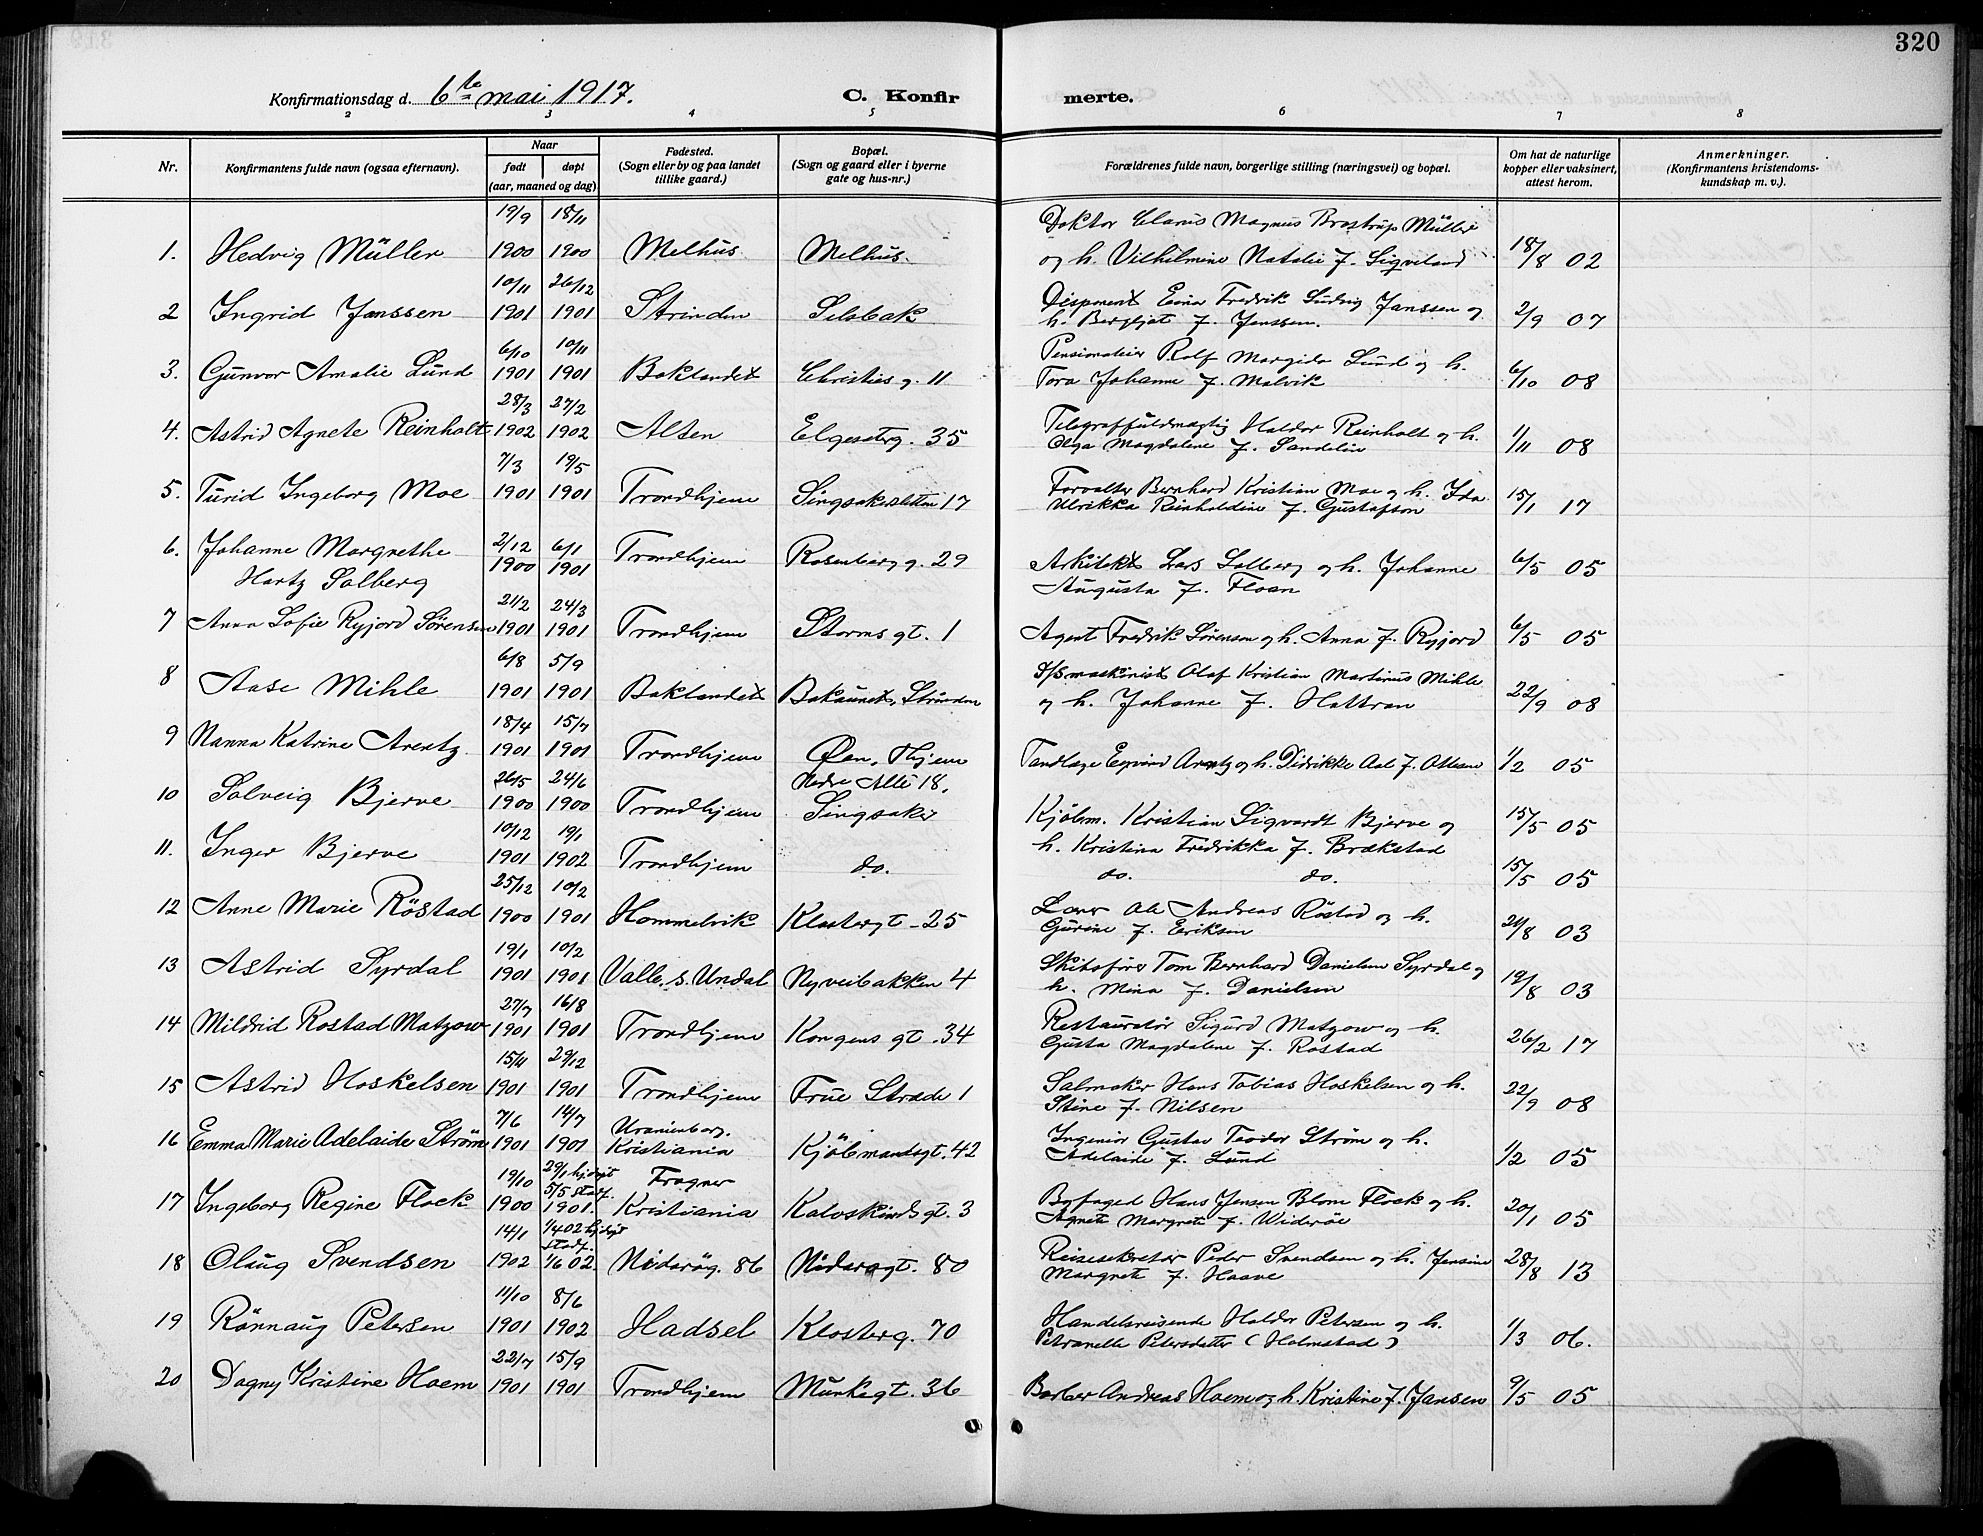 320
Konfirmationsdag d. 6te mai 1917. C. Konfirmerte.
2 3 4 5 6 7 8
Nr. Konfirmantens fulde navn (ogsaa efternavn). Naar født døpt (aar, maaned og dag). Fødested. (Sogn eller by og paa landet tillike gaard.) Bopæl. (Sogn og gaard eller i byerne gate og hus-nr.) Forældrenes fulde navn, borgerlige stilling (næringsvei) og bopæl. Om hat de naturlige kopper eller vaksinert, attest herom. Anmerkninger. (Konfirmantens kristendomskundskap m. v.).
1. Hedvig Müller 19/9 1900 18/11 1900 Melhus Melhus. Doktor Clarus Magnus Brostrup Müller og h. Vilhelmine Natalie f. Sigveland 18/8 02
2 Ingrid Janssen 10/11 1901 26/12 1901 Strinden Selsbak Disponent Einar Fredrik Ludvig Janssen og h. Bergljot f. Jenssen. 2/9 07
3. Gunvor Amalie Lund 6/10 1901 10/11 1901 Baklandet Christies g. 11 Rolf Margido Lund og h. Tora Johanne f. Malvik 6/10 08
4. Astrid Agnete Reinholt 28/3 1902 27/2 1902 Alten Elgesterg. 35 Telegraffuldmægtig Haldor Reinholt og h. Olga Magdalene f. Sandelin 1/11 08
5. Turid Ingeborg Moe 7/3 1901 19/5 1901 Trondhjem Singsakersletten 17 Forvalter Bernhard Kristian Moe og h. Ida Ulrikka Reinholdine f. Gustafson 15/1 17
6. Johanne Margrethe Hartz Solberg 2/12 1900 6/1 1901 Trondhjem Rosenborg g. 29 Arkitekt Lars Solberg og h. Johanne Augusta f. Floan 6/5 05
7 Anna Sofie Ryjord Sørensen 21/2 1901 24/3 1901 Trondhjem Storms gt. 1 Agent Fredrik Sørenson og h. Anna f. Ryjord 6/5 05
8 Aase Mihle 6/8 1901 5/9 1901 Baklandet Bakaunet, Strinden D/Smaskinist Olaf Kristian Martinus Mihle og h. Johanne f. Hattran 22/9 08
9 Nanna Katrine Arentz 18/4 1901 15/7 1901 Trondhjem Øen, Thjem Tandlæge Eyvind Arentz og h. Didrikke Aal f. Ottesen 1/2 05
10 Solveig Bjerve 26/5 1900 24/6 1900 Trondhjem Nedre Alle 18, Singsaker Kjøbm. Kristian Sigvardt Bjerve og h. Kristina Fredrikka f. Brækstad 15/5 05
11. Inger Bjerve 10/12 1901 19/1 1902 Trondhjem do. do. do. 15/5 05
12 Anne Marie Röstad 25/12 1900 10/2 1901 Hommelvik Klostergt. 25 Ole Andreas Röstad og h. Gurine f. Erikson 24/8 03
13 Astrid Syrdal 19/1 1901 10/2 1901 Valle, s. Undal Nyveibakken 4 Skibsfører Tom Bernhard Danielsen Syrdal og h. Mina f. Danielsen 19/8 03
14 Mildrid Rostad Matzow 27/7 1901 16/8 1901 Trondhjem Kongens gt. 34 Restauratör Sigurd Matzow og h. Gusta Magdalene f. Rostad 26/2 17
15 Astrid Hoskelsen 15/11 1901 29/12 1901 Trondhjem Frue Stræde 1 Salmaker Hans Tobias Hoskelsen og h. Stine f. Nilsen 22/9 08
16 Emma Marie Adelaide Ström 7/6 1901 14/7 1901 Uranienborg. Kristiania Kjöbmandsgt. 42 Ingeniör Gustav Teodor Ström og h. Adelaide f. Lund 1/2 05
17 Ingeborg Regine Flock 19/10 1900 29/1 hjdøpt 5/5 stadf. 1901. Frogner Kristiania Kalvskindsgt. 3 Byfoged Hans Jensen Blom Flock og h. Agnete Margrete f. Wideröe 20/1 05
18 Olaug Svendsen 14/1 1902 1/4 02 hjdøpt stadf. 1/6 02. Nidaróg. 86 Nidarogt. 80 Reisesekretær Peder Svendsen og h. Jensine Margrete f. Haave 28/8 13
19 Rönnaug Petersen 11/10 1901 8/6 1902 Hadsel Klosterg. 70 Handelsreisende Haldor Petersen og h. Petranelle Petersdatter (Holmstad) 1/3 06.
20 Dagny Kristine Hoem 22/7 1901 15/9 1901 Trondhjem Munkegt. 36 Barber Andreas Hoem og h. Kristine f. Jansen 9/5 05